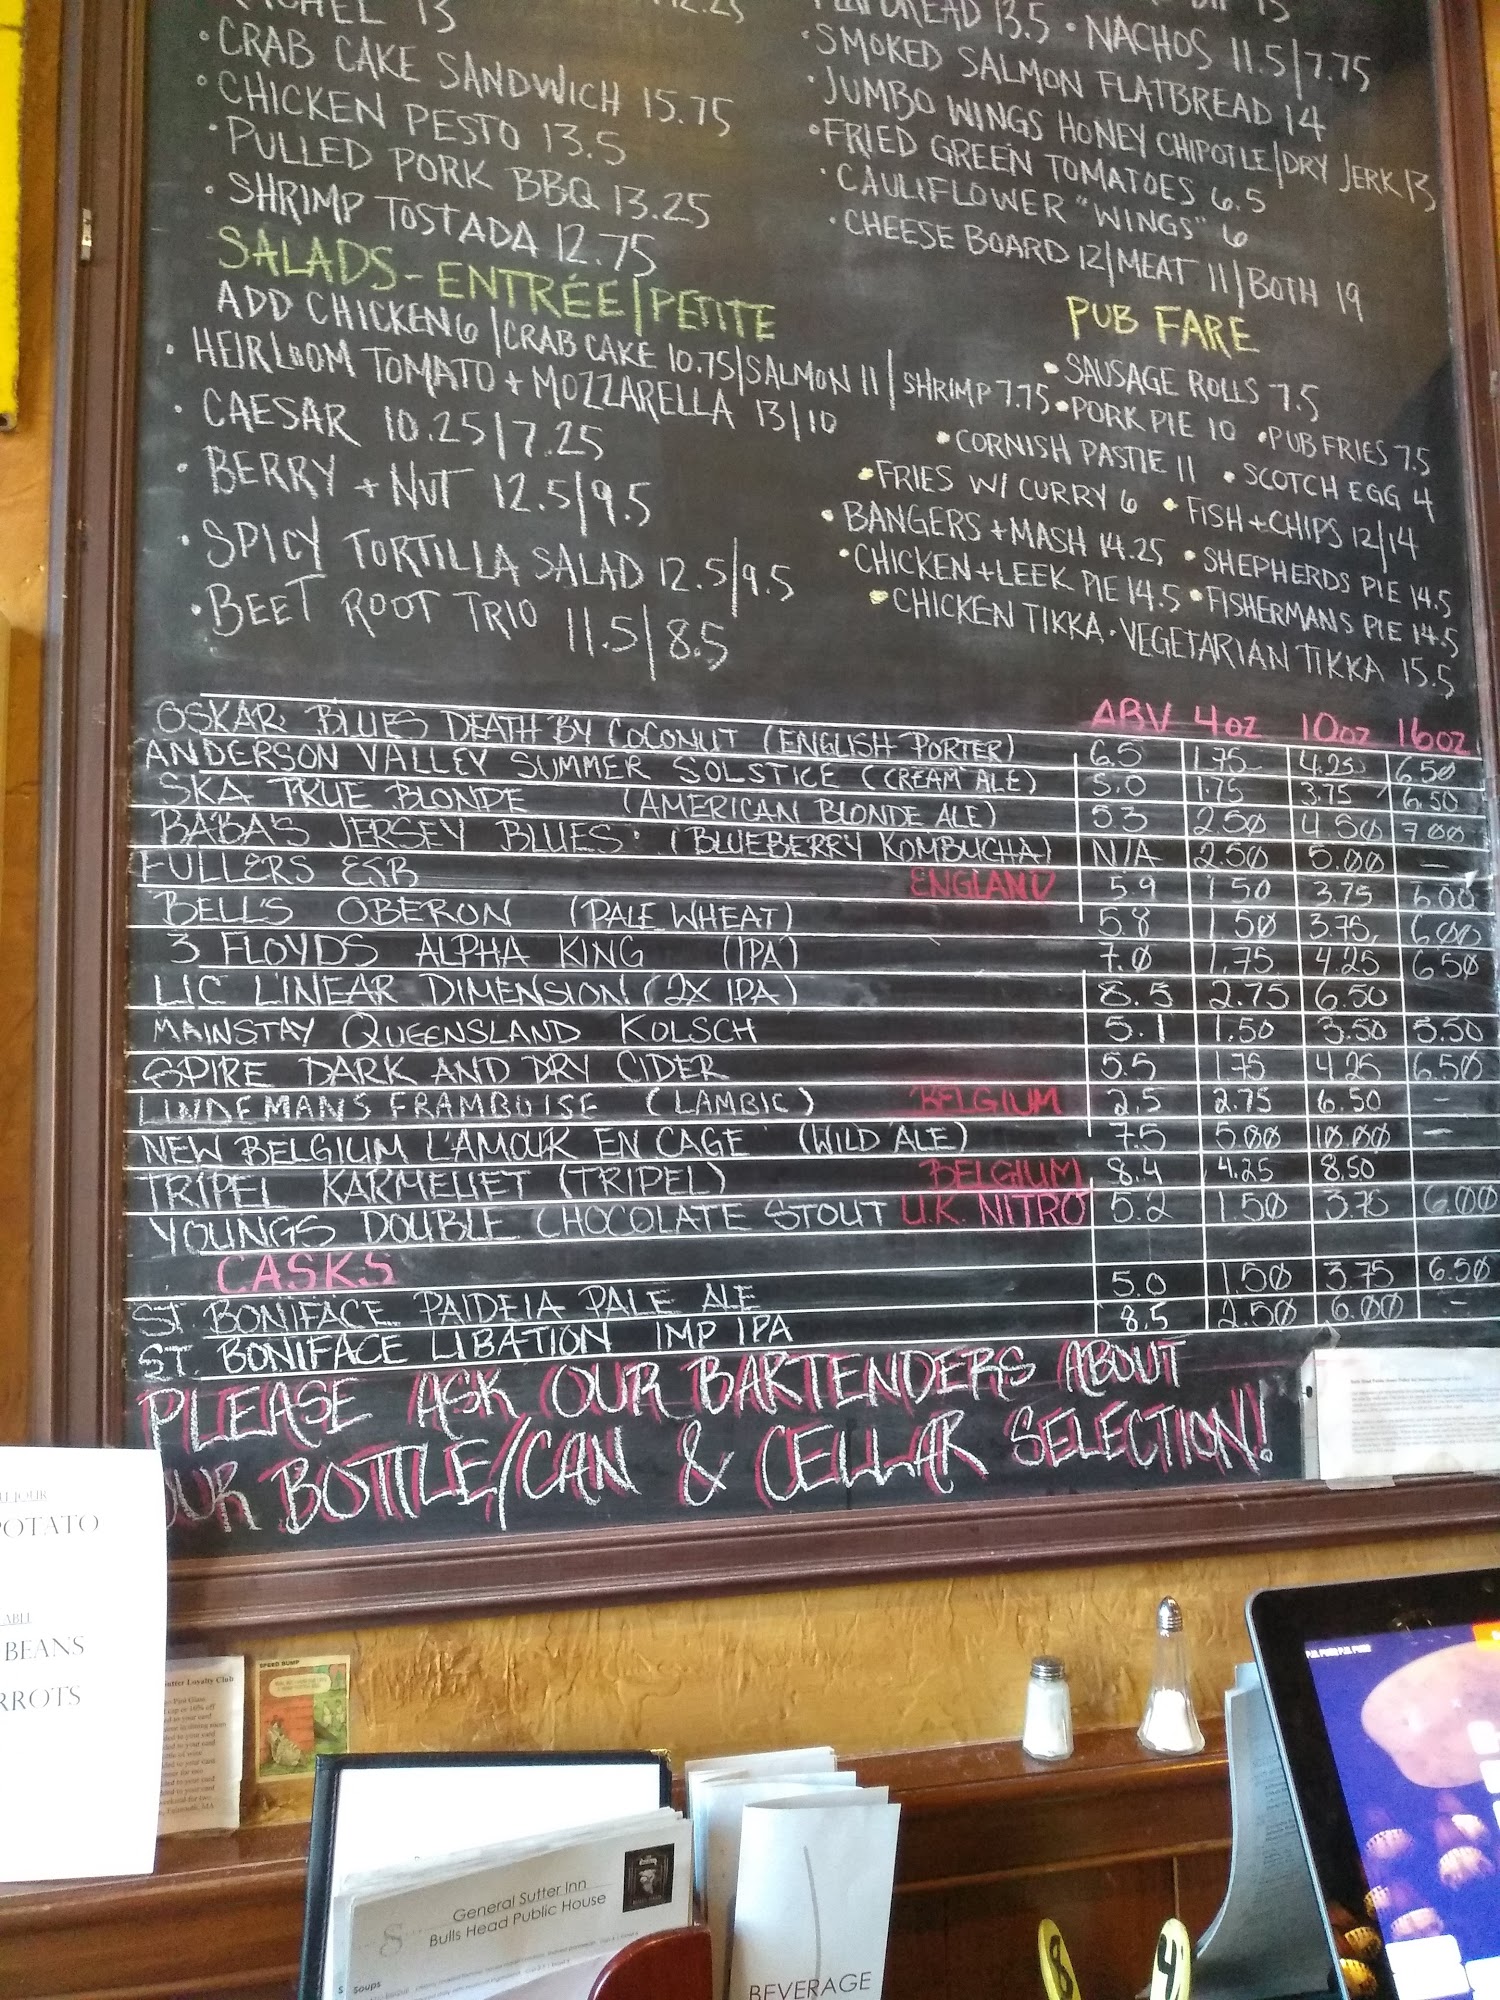 13
• CRAB CAKE SANDWICH 15.75
• CHICKEN PESTO 13.5
• PULLED PORK BBQ 13.25
• SHRIMP TOSTADA 12.75
SALADS - ENTRÉE|PETITE
ADD CHICKEN 6 |CRAB CAKE 10.75|SALMON 11| SHRIMP 7.75
• HEIRLOOM TOMATO + MOZZARELLA 13|10
• CAESAR 10.25|7.25
• BERRY + NUT 12.5|9.5
• SPICY TORTILLA SALAD 12.5|9.5
• BEET ROOT TRIO 11.5|8.5
13.5 • NACHOS 11.5|7.75
• SMOKED SALMON FLATBREAD 14
• JUMBO WINGS HONEY CHIPOTLE|DRY JERK 13
• FRIED GREEN TOMATOES 6.5
• CAULIFLOWER "WINGS" 6
• CHEESE BOARD 12|MEAT 11|BOTH 19
PUB FARE
• SAUSAGE ROLLS 7.5
• PORK PIE 10 • PUB FRIES 7.5
• CORNISH PASTIE 11 • SCOTCH EGG 4
• FRIES W/ CURRY 6 • FISH + CHIPS 12|14
• BANGERS + MASH 14.25 • SHEPHERDS PIE 14.5
• CHICKEN + LEEK PIE 14.5 • FISHERMANS PIE 14.5
• CHICKEN TIKKA • VEGETARIAN TIKKA 15.5
ABV 4oz 10oz 16oz
OSKAR BLUES DEATH BY COCONUT (ENGLISH PORTER) 6.5 1.75 4.25 6.50
ANDERSON VALLEY SUMMER SOLSTICE (CREAM ALE) 5.0 1.75 3.75 6.50
SKA TRUE BLONDE (AMERICAN BLONDE ALE) 5.3 2.50 4.50 7.00
BABA'S JERSEY BLUES (BLUEBERRY KOMBUCHA) N/A 2.50 5.00 —
FULLERS ESB ENGLAND 5.9 1.50 3.75 6.00
BELL'S OBERON (PALE WHEAT) 5.8 1.50 3.75 6.00
3 FLOYDS ALPHA KING (IPA) 7.0 1.75 4.25 6.50
LIC LINEAR DIMENSION (2X IPA) 8.5 2.75 6.50
MAINSTAY QUEENSLAND KOLSCH 5.1 1.50 3.50 5.50
SPIRE DARK AND DRY CIDER 5.5 1.75 4.25 6.50
LINDEMANS FRAMBOISE (LAMBIC) BELGIUM 2.5 2.75 6.50 -
NEW BELGIUM L'AMOUR EN CAGE (WILD ALE) 7.5 5.00 10.00 —
TRIPEL KARMELIET (TRIPEL) BELGIUM 8.4 4.25 8.50
YOUNGS DOUBLE CHOCOLATE STOUT U.K. NITRO 5.2 1.50 3.75 6.00
CASKS
ST. BONIFACE PAIDEIA PALE ALE 5.0 1.50 3.75 6.50
ST. BONIFACE LIBATION IMP IPA 8.5 2.50 6.00 -
PLEASE ASK OUR BARTENDERS ABOUT
OUR BOTTLE/CAN & CELLAR SELECTION!
POTATO
BEANS
Loyalty Club
SPEED BUMP
General Sutter Inn
Bulls Head Public House
Soups
BEVERAGE
8
4